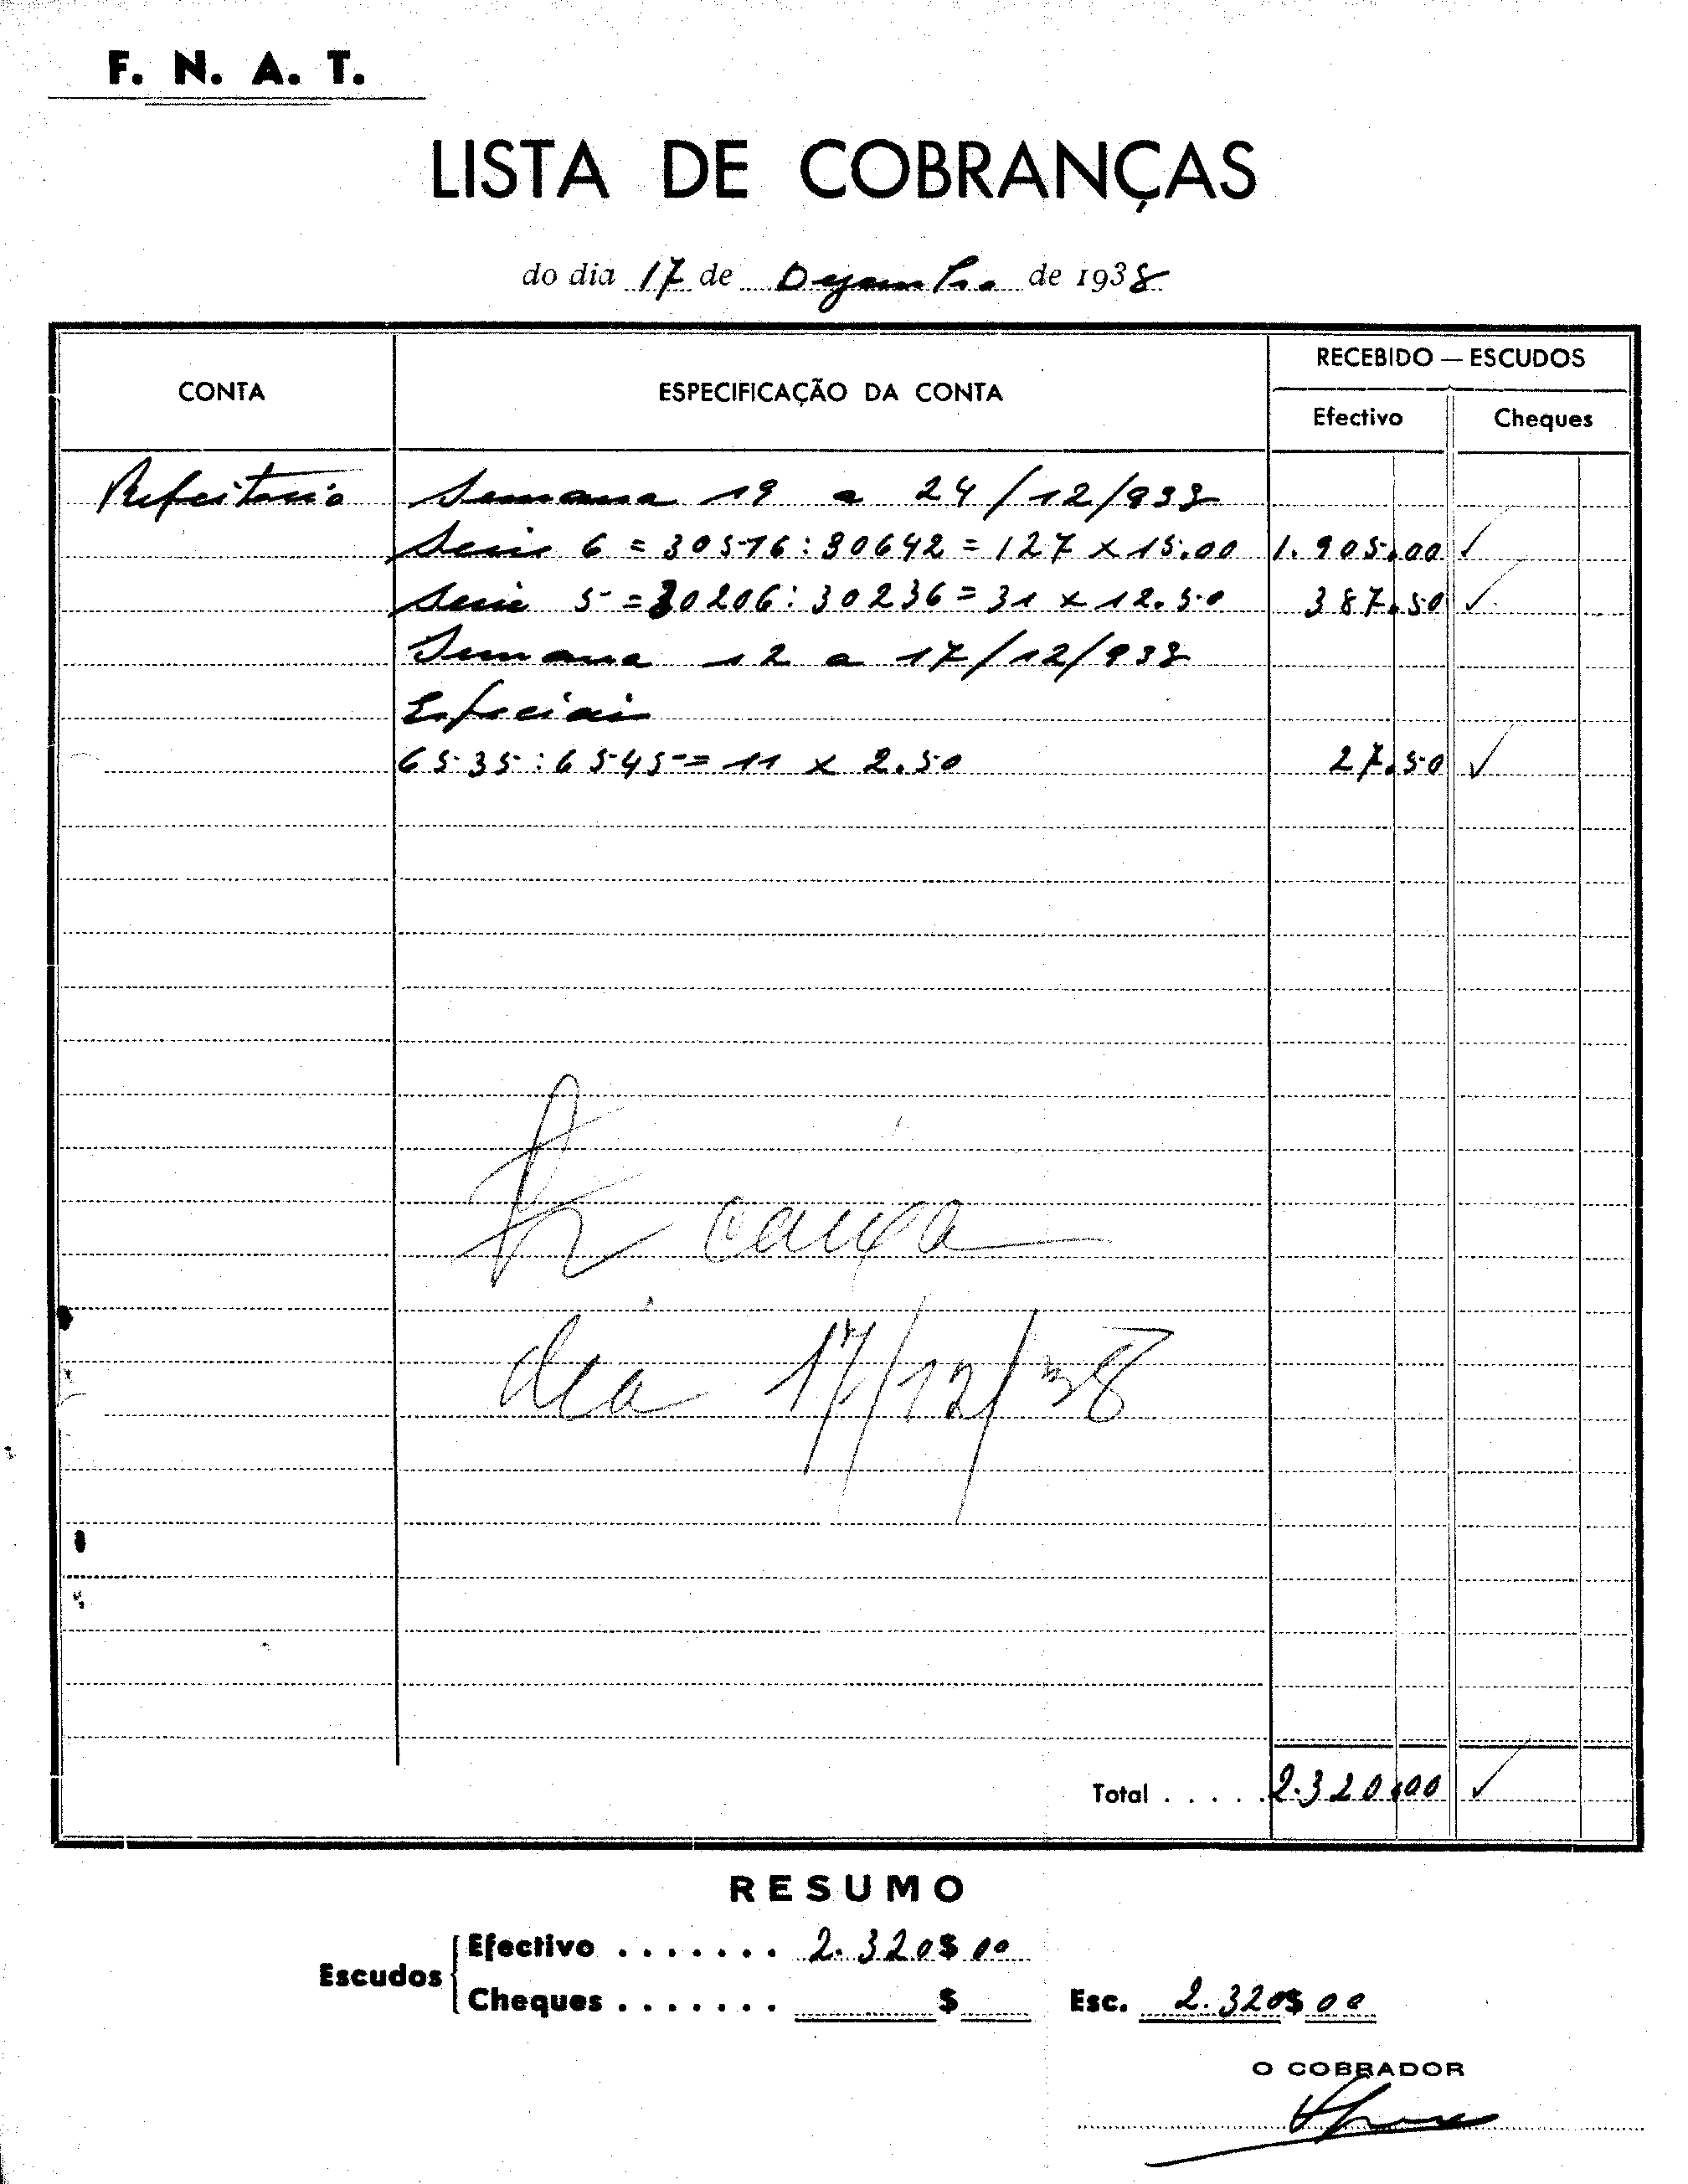 F. N. A. T.
LISTA DE COBRANÇAS
do dia 17 de Dezembro de 1938
CONTA
ESPECIFICAÇÃO DA CONTA
RECEBIDO — ESCUDOS
Efectivo
Cheques
Refeitorio Semana 19 a 24/12/938
Serie 6 = 30516:30642 = 127 x 15.00 1.905.00 ✓
Serie 5 = 30206:30236 = 31 x 12.50 387.50 ✓
Semana 12 a 17/12/938
Especiais
6535:6545 = 11 x 2.50 27.50 ✓
caixa
dia 17/12/38
Total ..... 2.320.00 ✓
RESUMO
Escudos
Efectivo ....... 2.320$00
Cheques ....... $
Esc. 2.320$00
O COBRADOR